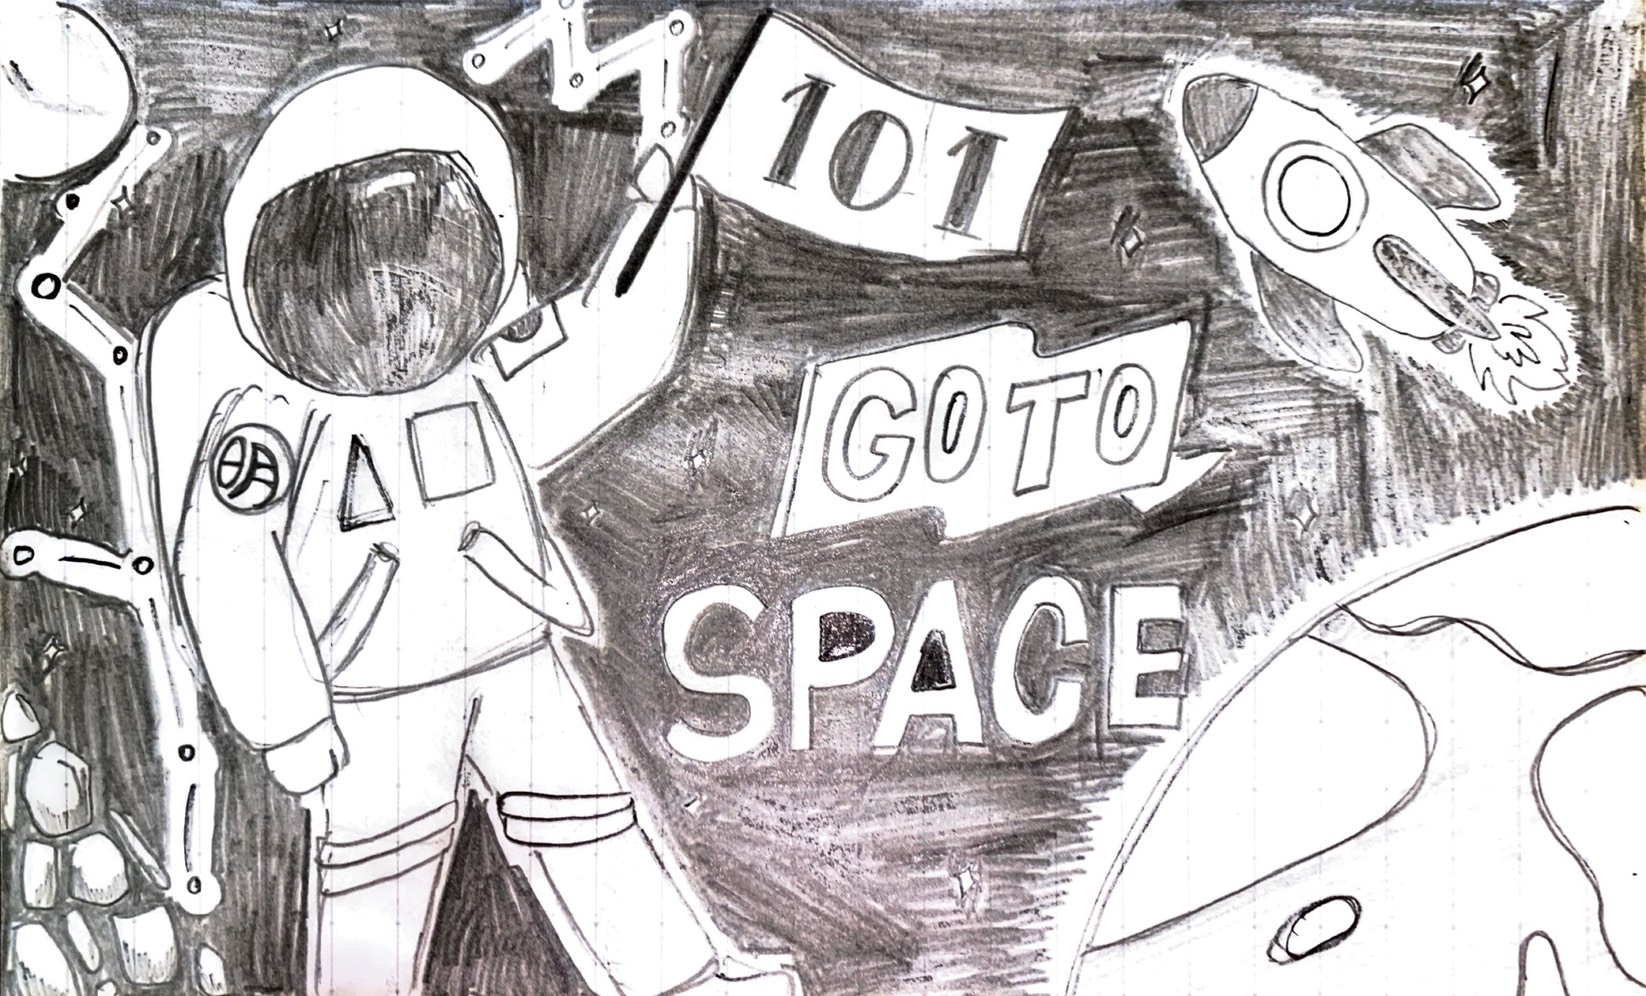 101
GOTO
SPACE
明